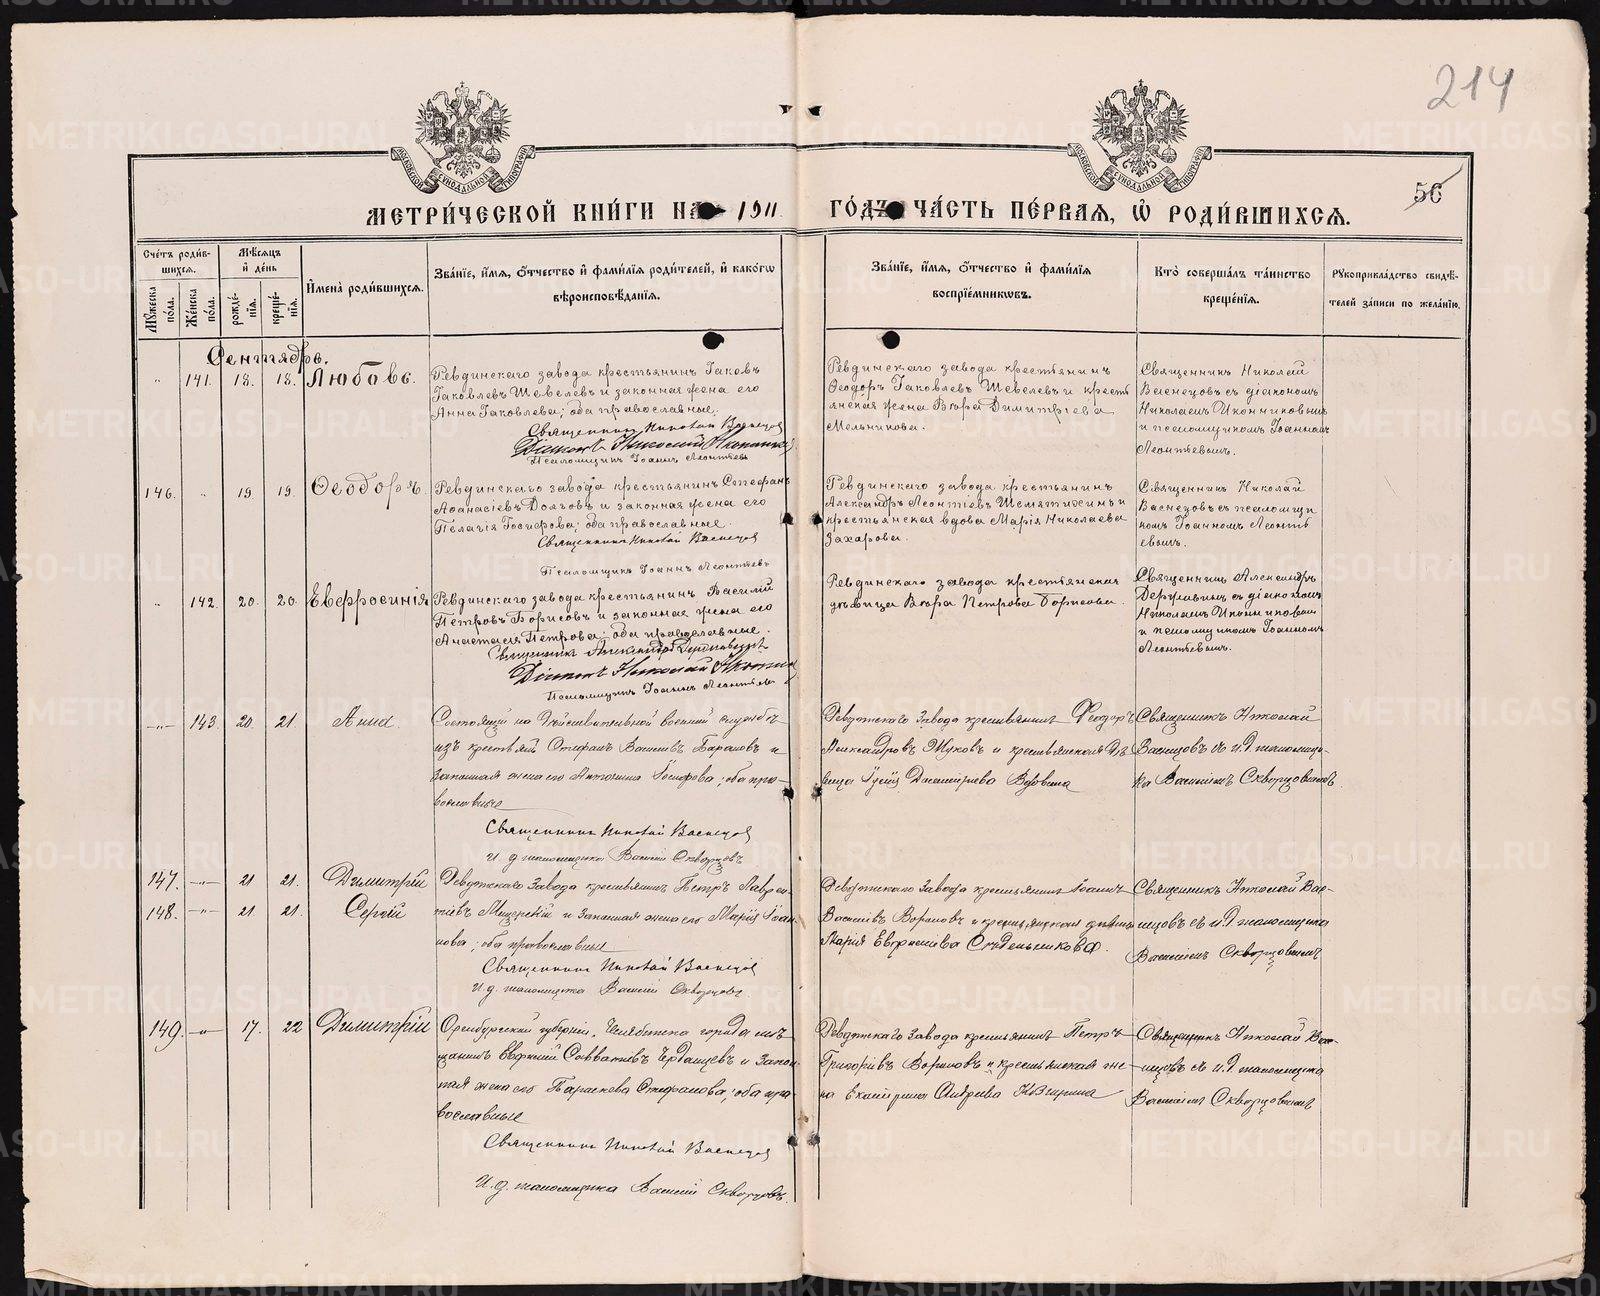 214
56
МЕТРИ́ЧЕСКОЙ КНИ́ГИ НА 1911
ГО́ДЪ ЧА́СТЬ ПЕ́РВАѦ, Ѡ҆ РОДИ́ВШИХСѦ.
Сче́тъ роди́в-
шихсѧ.
Мꙋ́жеска по́ла.
Же́нска по́ла.
Мѣ́сѧцъ и҆ де́нь
рожде́-нїѧ.
креще́-нїѧ.
И҆мена̀ роди́вшихсѧ.
Зва́нїе, и҆́мѧ, ѻ҆́тчество и҆ фами́лїѧ роди́телей, и҆ како́гѡ
вѣроисповѣ́данїѧ.
Зва́нїе, и҆́мѧ, ѻ҆́тчество и҆ фами́лїѧ
воспрїе́мникѡвъ.
Кто̀ соверша́лъ та́инство
креще́нїѧ.
Рꙋкоприкла́дство свидѣ́-
телей за́писи по жела́нїю.
Сентябрь.
" 141. 18. 18. Любовь.
Ревдинскаго завода крестьянинъ Іаковъ
Іаковлевъ Шевелевъ и законная жена его
Анна Іаковлева; оба православные.
Священникъ Николай Васнецовъ
Діаконъ Николай Иконниковъ
Псаломщикъ Іоаннъ Леонтьевъ
Ревдинскаго завода крестьянинъ
Ѳеодоръ Іаковлевъ Шевелевъ и кресть
янская жена Вѣра Димитріева
Мельникова.
Священникъ Николай
Васнецовъ съ діакономъ
Николаемъ Иконниковымъ
и псаломщикомъ Іоанномъ
Леонтьевымъ.
146. " 19. 19. Ѳеодоръ.
Ревдинскаго завода крестьянинъ Стефанъ
Аѳанасіевъ Долговъ и законная жена его
Пелагія Гоѳорова; оба православные.
Священникъ Николай Васнецовъ
Псаломщикъ Іоаннъ Леонтьевъ
Ревдинскаго завода крестьянинъ
Александръ Леонтіевъ Шелятихинъ и
крестьянская вдова Марія Николаева
Захарова.
Священникъ Николай
Васнецовъ съ псаломщи
комъ Іоанномъ Леонть
евымъ.
" 142. 20. 20. Евфросинія
Ревдинскаго завода крестьянинъ Василій
Петровъ Борисовъ и законная жена его
Анастасія Петрова; оба православные.
Священникъ Александръ
Діаконъ Николай Иконник
Псаломщикъ Іоаннъ Леонтьевъ
Ревдинскаго завода крестьянская
дѣвица Вѣра Петрова Борисова.
Священникъ Александръ
Державинъ съ діакономъ
Николаемъ Иконниковым
и псаломщикомъ Іоанномъ
Леонтьевымъ.
" 143. 20. 21. Анна
Состоящій на Дѣйствительной военной службѣ
изъ крестьянъ Стефанъ Васильевъ Барановъ и
законная жена его Антонина; оба пра-
вославные
Священникъ Николай Васнецов
И. д. псаломщика Василій Скворцовъ
Ревдинскаго Завода крестьянинъ Ѳеодоръ
Александровъ Жуковъ и крестьянская дѣ-
вица Димитріева Вдовина
Священникъ Николай
Васнецовъ съ и. д. псаломщи-
ка Василіемъ Скворцовымъ.
147. " 21 21. Димитрій
148. " 21. 21. Сергій
Ревдинскаго Завода крестьянинъ Петръ Лаврен-
тіевъ Мещерскій и Законная жена его Марія Іоан-
нова; оба православные
Священникъ Николай Васнецов
И. д. псаломщика Василій Скворцовъ.
Ревдинскаго Завода крестьянинъ Іоаннъ
Василіевъ Вороновъ и крестьянская дѣвица
Марія Евфимиева Студенникова.
Священникъ Николай Вас-
нецовъ съ и. д. псаломщика
Василіемъ Скворцовымъ
149. " 17. 22 Димитрій
Оренбургской губерніи, Челябинска города мѣ-
щанинъ Евфимій Савватіевъ Ердащевъ и Закон-
ная жена его Параскева Стефанова; оба пра-
вославные
Священникъ Николай Васнецов
И. д. псаломщика Василій Скворцовъ.
Ревдинскаго Завода крестьянинъ Петръ
Григоріевъ Вороновъ и крестьянская же-
на Екатерина Андреева
Священникъ Николай Вас-
нецовъ съ и. д. псаломщика
Василіемъ Скворцовымъ